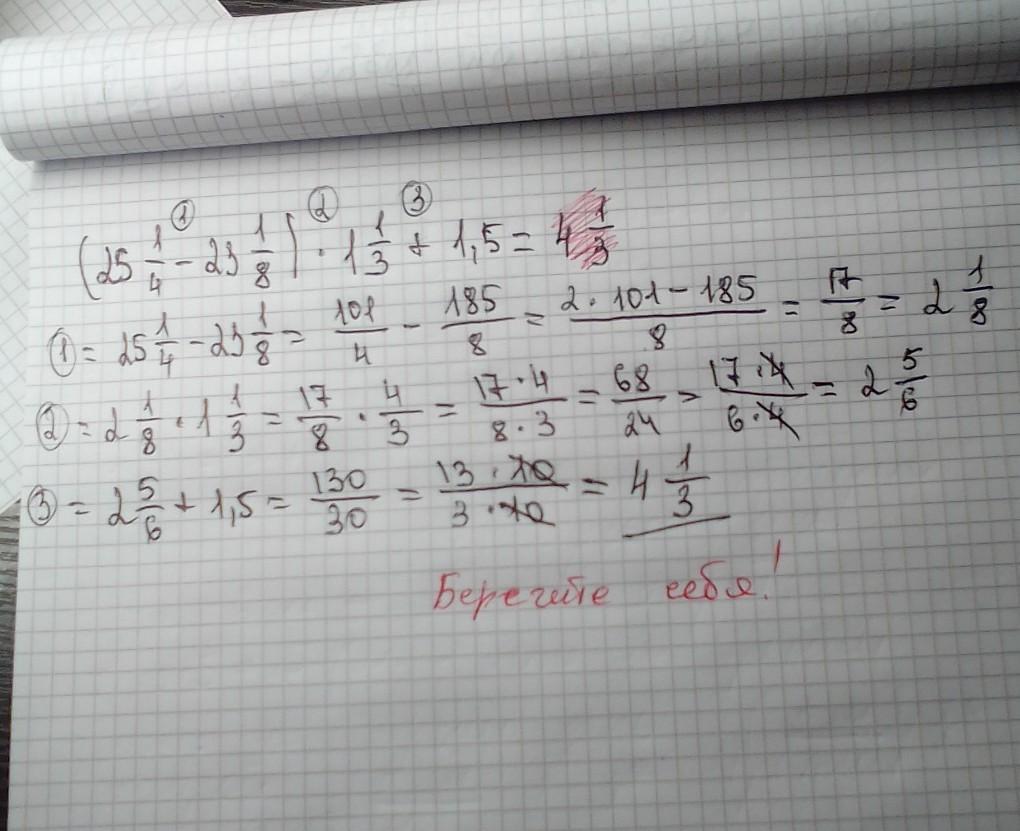 (25 1/4 - 23 1/8) · 1 1/3 + 1,5 = 4 1/3
① = 25 1/4 - 23 1/8 = 101/4 - 185/8 = (2·101-185)/8 = 17/8 = 2 1/8
② = 2 1/8 · 1 1/3 = 17/8 · 4/3 = (17·4)/(8·3) = 68/24 = (17·4)/(6·4) = 2 5/6
③ = 2 5/6 + 1,5 = 130/30 = (13·10)/(3·10) = 4 1/3
Берегите себя!